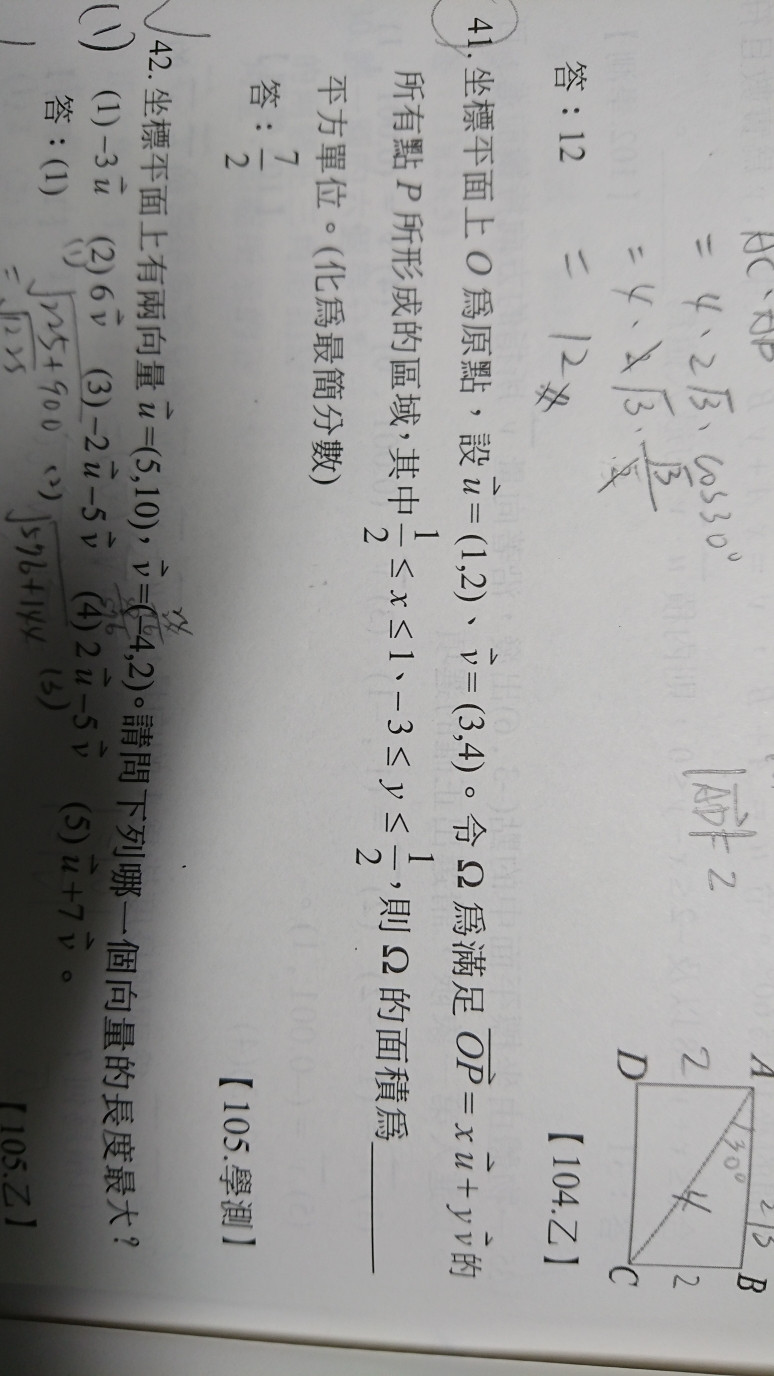 AC、AP
= 4、2√3、cos30°
= 4、2√3、√3/2
= 12
|AD|=2
A
2√3
B
30°
2
4
2
D
C
答：12
【104.乙】
41. 坐標平面上 O 為原點，設 u⃗=(1,2)、v⃗=(3,4)。令 Ω 為滿足 OP⃗=xu⃗+yv⃗ 的
所有點 P 所形成的區域，其中 1/2 ≤ x ≤ 1、−3 ≤ y ≤ 1/2，則 Ω 的面積為
平方單位。(化為最簡分數)
答：7/2
【105.學測】
42. 坐標平面上有兩向量 u⃗=(5,10)，v⃗=(−4,2)。請問下列哪一個向量的長度最大？
(1)
(1)−3u⃗ (2) 6v⃗ (3)−2u⃗−5v⃗ (4) 2u⃗−5v⃗ (5) u⃗+7v⃗。
答：(1)
【105.乙】
(1) √225+900 (2) √576+144 (3)
= √1225